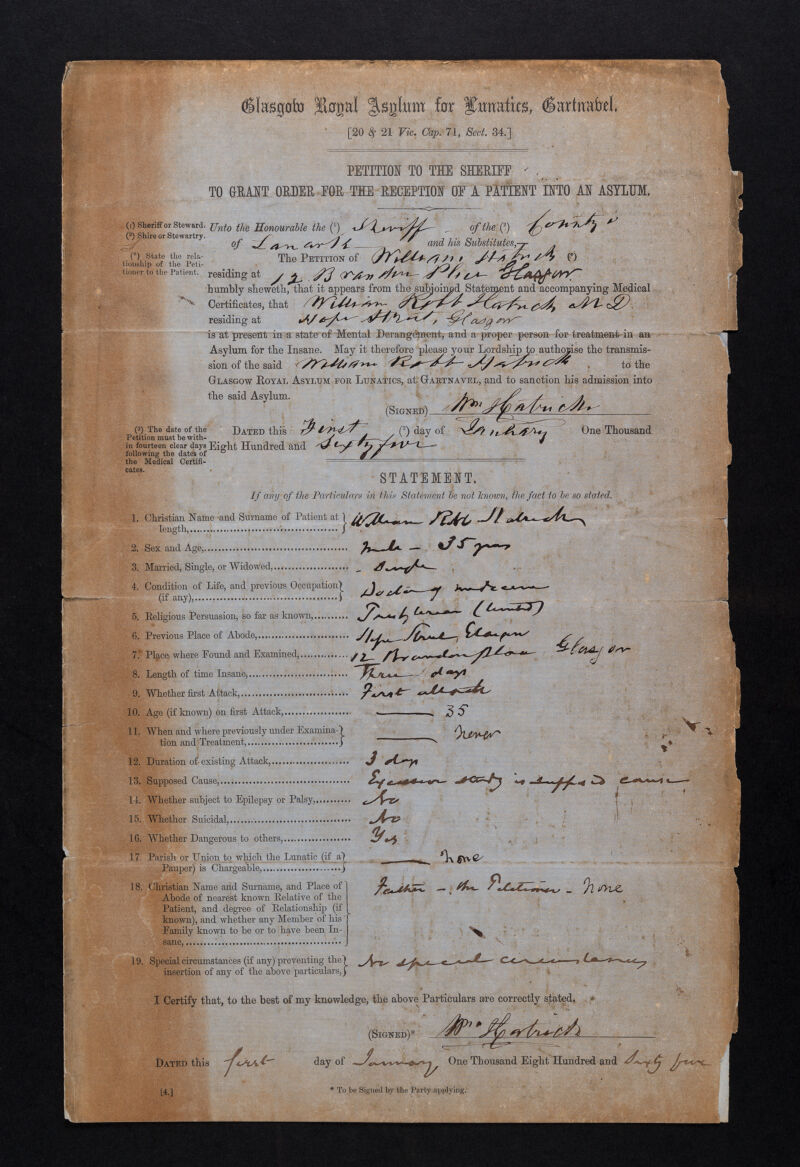 Glasgow Royal Asylum for Lunatics, Gartnavel.
[20 & 21 Vic. Cap. 71, Sect. 34.]
PETITION TO THE SHERIFF
TO GRANT ORDER FOR THE RECEPTION OF A PATIENT INTO AN ASYLUM.
(1) Sheriff or Steward.
(2) Shire or Stewartry.
Unto the Honourable the (1) Sheriff of the (2) County
of Lanark and his Substitutes,
(*) State the rela-
tionship of the Peti-
tioner to the Patient.
The PETITION of William (*)
residing at 12 Brandon Place Glasgow
humbly sheweth, that it appears from the subjoined Statement and accompanying Medical
Certificates, that William Robb M D
residing at Hope Street, Glasgow
is at present in a state of Mental Derangement, and a proper person for treatment in an
Asylum for the Insane. May it therefore please your Lordship to authorise the transmis-
sion of the said William Robb to the
GLASGOW ROYAL ASYLUM FOR LUNATICS, at GARTNAVEL, and to sanction his admission into
the said Asylum.
(SIGNED) Wm
(3) The date of the
Petition must be with-
in fourteen clear days
following the dates of
the Medical Certifi-
cates.
DATED this First (3) day of January One Thousand
Eight Hundred and Sixty five
STATEMENT.
If any of the Particulars in this Statement be not known, the fact to be so stated.
1. Christian Name and Surname of Patient at
length, William Robb
2. Sex and Age, Male - 35 years
3. Married, Single, or Widowed, Single
4. Condition of Life, and previous Occupation
(if any), Doctor of medicine
5. Religious Persuasion, so far as known, Presbyterian (United)
6. Previous Place of Abode, Hope Street, Glasgow
7. Place where Found and Examined, 12 Brandon place Glasgow
8. Length of time Insane, Three days
9. Whether first Attack, First attack
10. Age (if known) on first Attack, 35
11. When and where previously under Examina-
tion and Treatment, never
12. Duration of existing Attack, 3 days
13. Supposed Cause, Excessive study is supposed cause
14. Whether subject to Epilepsy or Palsy, No
15. Whether Suicidal, No
16. Whether Dangerous to others, Yes
17. Parish or Union to which the Lunatic (if a
Pauper) is Chargeable, none
18. Christian Name and Surname, and Place of
Abode of nearest known Relative of the
Patient, and degree of Relationship (if
known), and whether any Member of his
Family known to be or to have been In-
sane, Father - the Petitioner - None
19. Special circumstances (if any) preventing the
insertion of any of the above particulars, No special circumstances
I Certify that, to the best of my knowledge, the above Particulars are correctly stated.
(SIGNED)* Wm
DATED this first day of January One Thousand Eight Hundred and Sixty five
[4.]
* To be Signed by the Party applying.